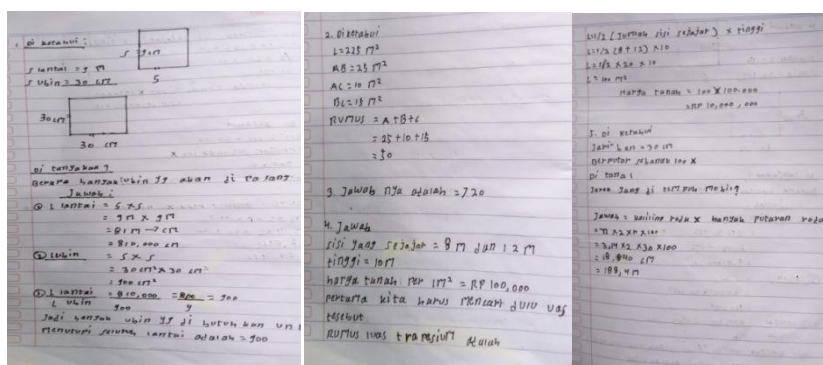 1. Di ketahui :
S = 9 M
S
S lantai = 9 M
S ubin = 30 cM
30 cM
30 cM
Di tanyakan ?
Berapa banyak ubin yg akan di pasang
Jawab :
① L lantai = S x S
= 9 M x 9 M
= 81 M → cM
= 810,000 cM
② L ubin = S x S
= 30 cM² x 30 cM
= 900 cM²
③ L lantai = 810,000 = = 900
L ubin 900 9
Jadi banyak ubin yg di butuh kan un
Menutupi seluruh lantai adalah = 900
2. Diketahui
L = 225 M²
AB = 25 M²
AC = 10 M²
BC = 15 M²
RUMUS = A + B + C
= 25 + 10 + 15
= 50
3. Jawab nya adalah = 720
4. Jawab
Sisi yang sejajar = 8 M dan 12 M
tinggi = 10 M
harga tanah per 1 M² = RP 100,000
pertama kita harus Mencari dulu uas
tesebut
RUMUS luas trapesium adalah
L = 1/2 (Jumlah sisi sejajar) x tinggi
L = 1/2 (8 + 12) x 10
L = 1/2 x 20 x 10
L = 100 M²
Harga tanah = 100 x 100.000
= RP 10,000,000
5. Di ketahui
Jari² ban = 30 cM
Berputar sebanyak 100 x
Di tanya :
Jarak yang di teMpuh Mobing
Jawab = keliling roda x banyak putaran roda
= π x 2 x r x 100
= 3,14 x 2 x 30 x 100
= 18,840 cM
= 188,4 M